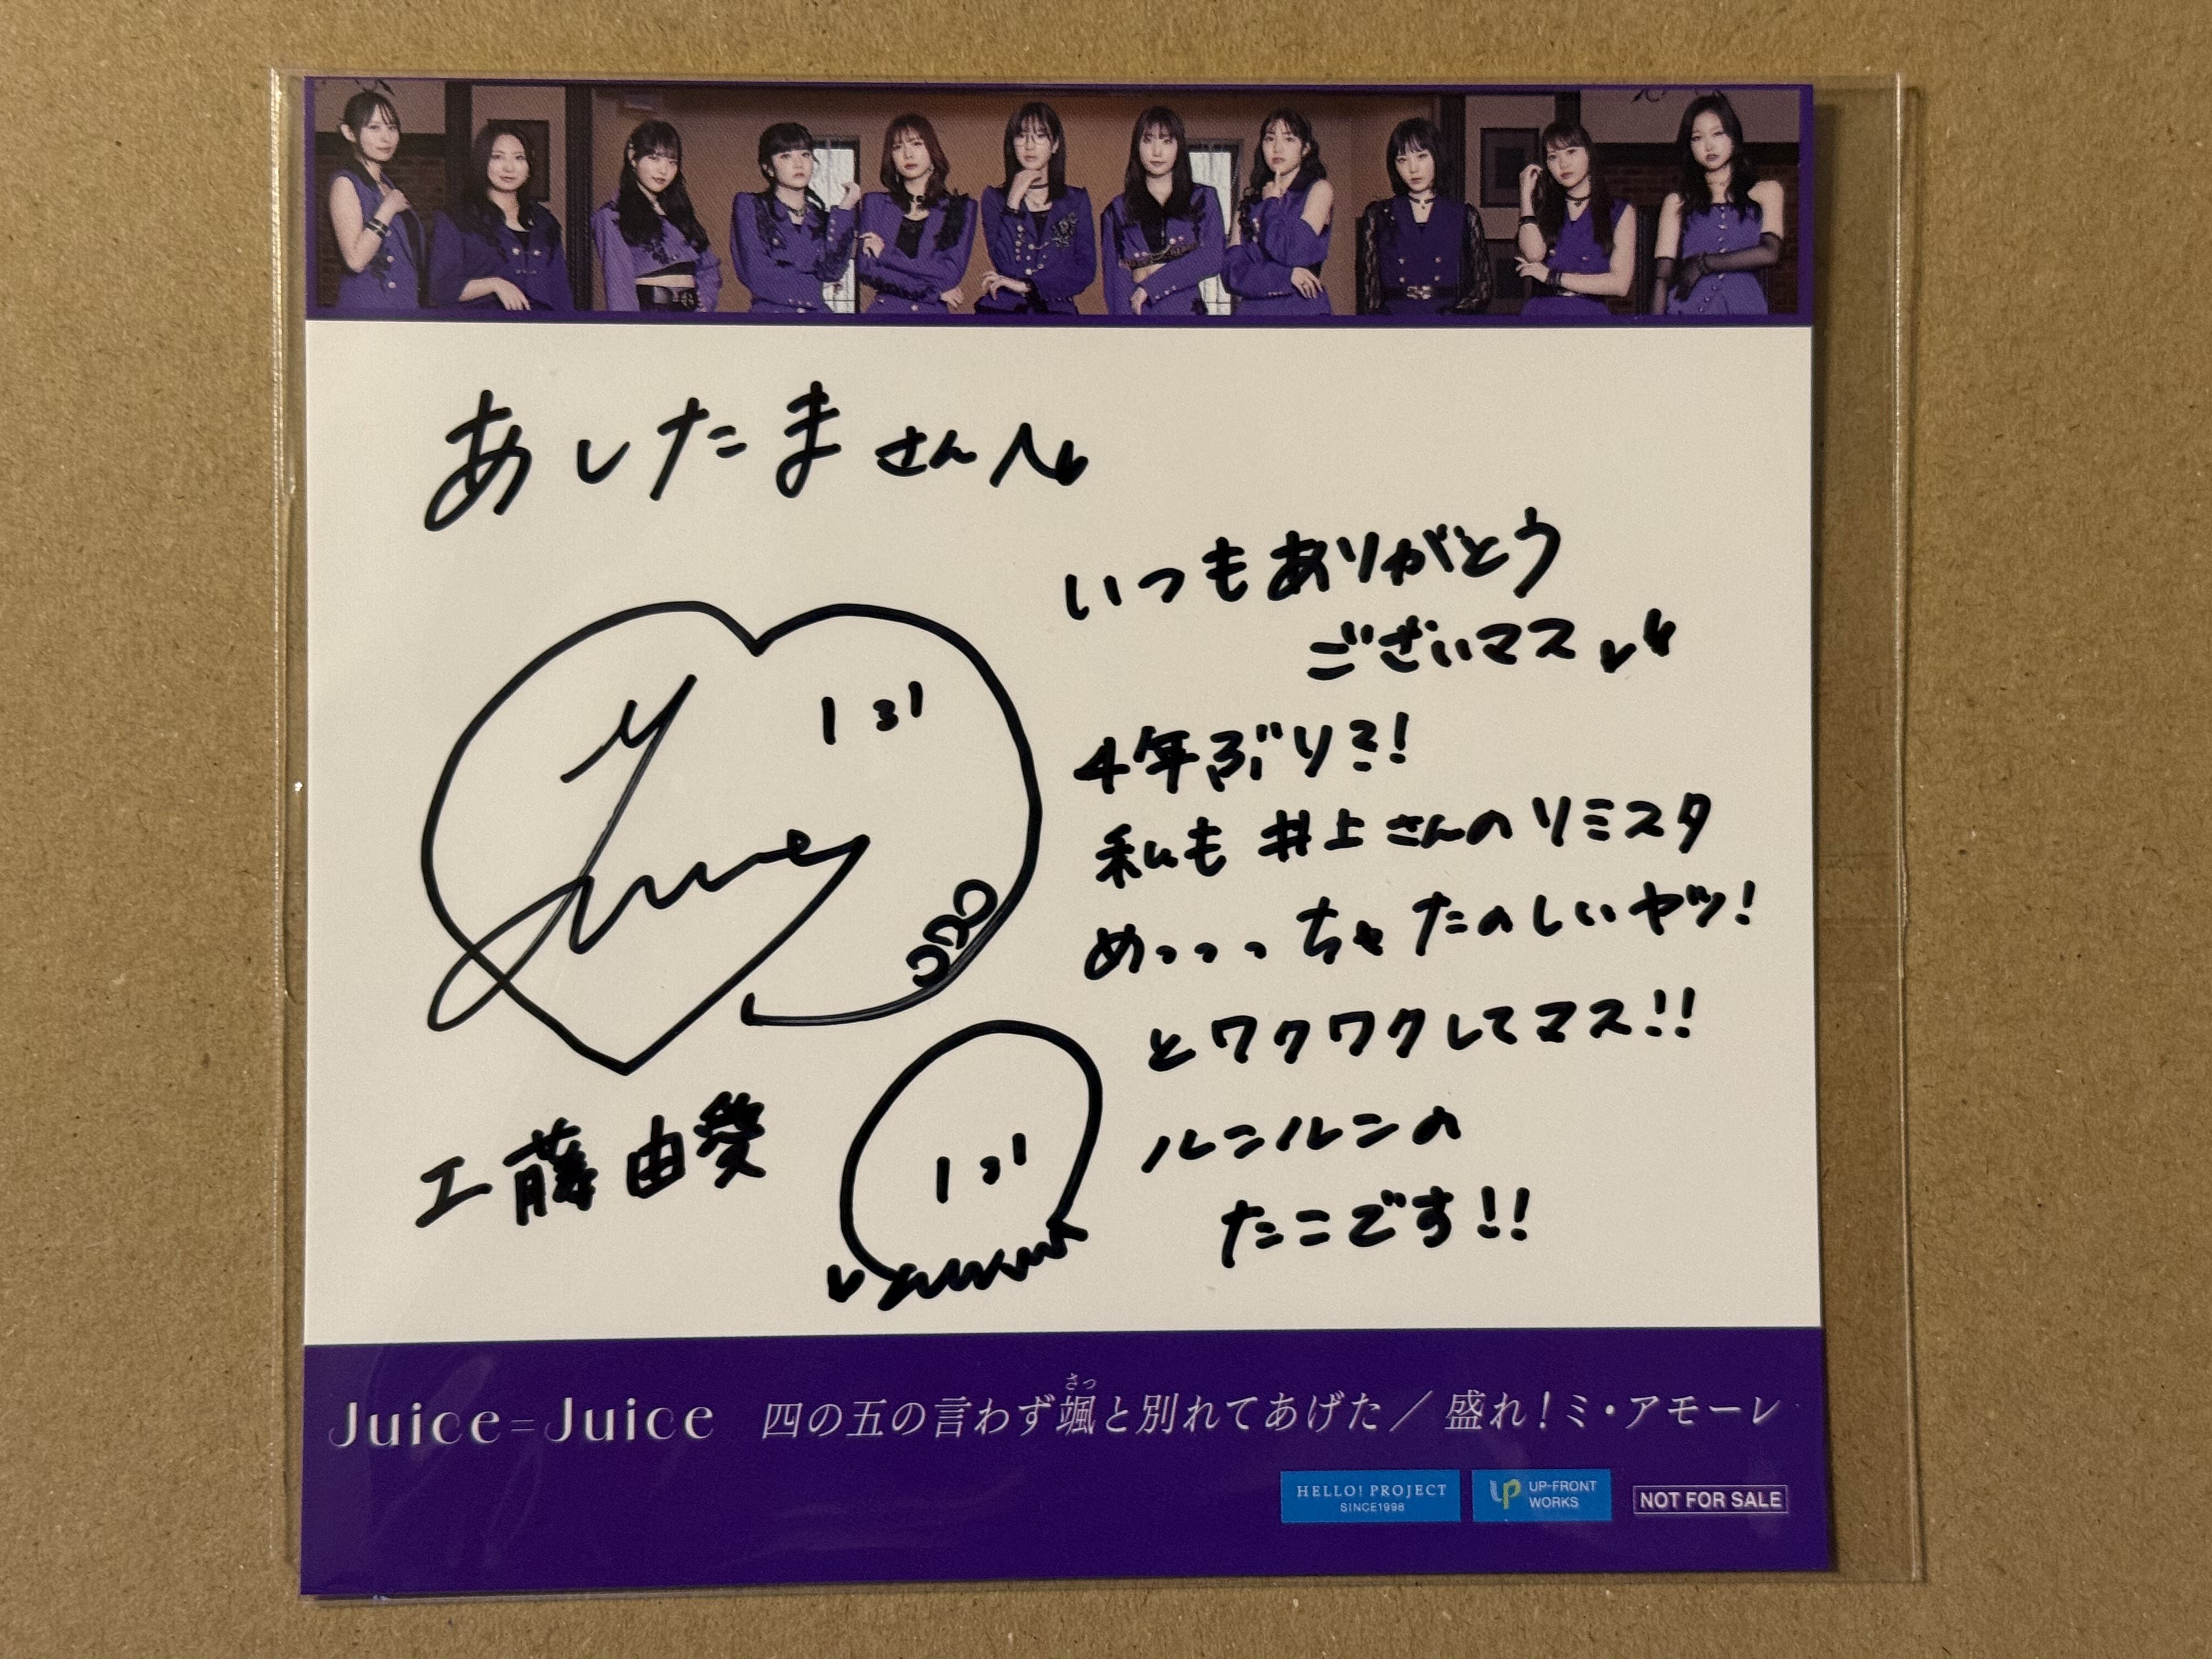 あしたまさんへ
いつもありがとう
ございマス
4年ぶりミ!
私も井上さんのリミスタ
めっっっちゃたのしいヤツ!
とワクワクしてマス!!
ルンルンの
たこです!!
工藤由愛
Juice=Juice 四の五の言わず颯と別れてあげた／盛れ!ミ・アモーレ
さっ
HELLO! PROJECT
SINCE1998
UP-FRONT
WORKS
NOT FOR SALE